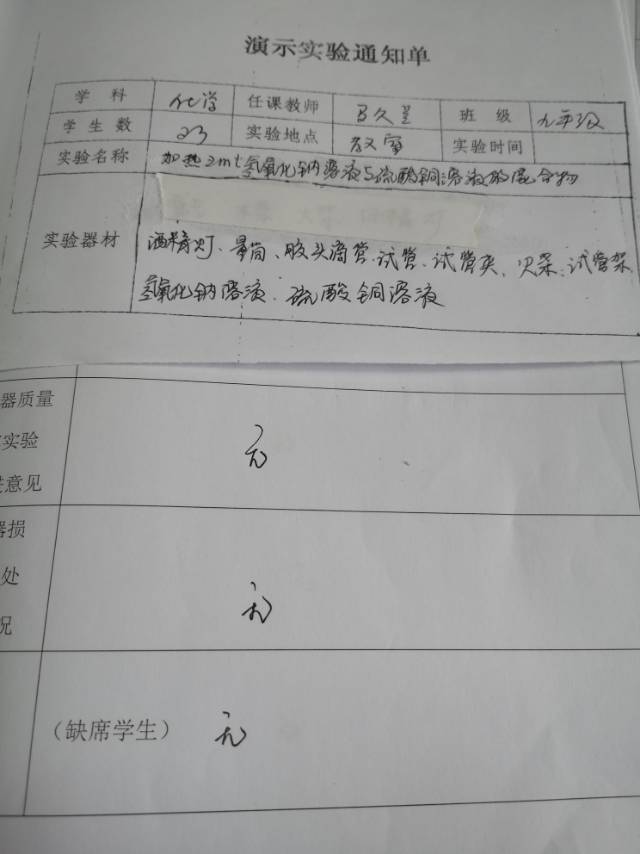 演示实验通知单
学科 化学 任课教师 班级 九年级
学生数 23 实验地点 教室 实验时间
实验名称 加热2ml氢氧化钠溶液与硫酸铜溶液的混合物
实验器材 酒精灯、量筒、胶头滴管、试管、试管夹、火柴、试管架
氢氧化钠溶液、硫酸铜溶液
器质量
实验
意见
无
损
处
况
无
(缺席学生) 无